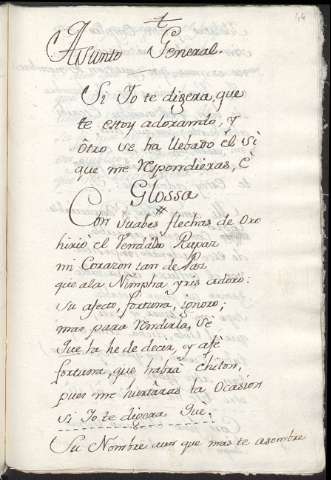 Asunto General.
Si Yo te digera, que
te estoy adorando, y
Otro se ha llebado el Si
que me respondieras, è
Glossa
Con suabes flechas de Oro
hirio el Vendado Rapaz
mi Corazon tan de Paz
que a la Nimpha yris adoro:
su afecto, fortuna, ignoro,
mas para rendirla, Si
Que la he de decir, y afè
fortuna, que habrà chiton,
pues me hurtaràs la Ocasion
si Yo te digera Què.
Su Nombre que mas te asombre